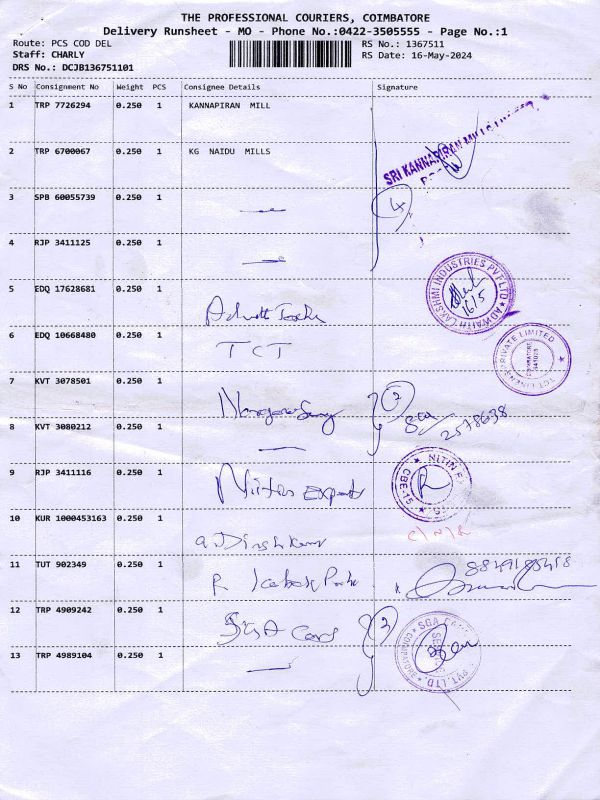 THE PROFESSIONAL COURIERS, COIMBATORE
Delivery Runsheet - MO - Phone No.:0422-3505555 - Page No.:1
Route: PCS COD DEL
RS No.: 1367511
Staff: CHARLY
RS Date: 16-May-2024
DRS No.: DCJB136751101
S No Consignment No Weight PCS Consignee Details Signature
1 TRP 7726294 0.250 1 KANNAPIRAN MILL
SRI KANNAPIRAN MILLS
2 TRP 6700067 0.250 1 KG NAIDU MILLS
3 SPB 60055739 0.250 1
4
4 RJP 3411125 0.250 1
5 EDQ 17628681 0.250 1
ADWAITH LAKSHMI INDUSTRIES PVT LTD
16/5
6 EDQ 10668480 0.250 1 TCT
PRIVATE LIMITED
COIMBATORE
7 KVT 3078501 0.250 1
2
8 KVT 3080212 0.250 1
2578638
9 RJP 3411116 0.250 1 Nitin Exports
NITIN
CBE-15
C/N/R
10 KUR 1000453163 0.250 1
11 TUT 902349 0.250 1 R
12 TRP 4909242 0.250 1 SGA Cars
2
SGA CARS
PVT. LTD.
13 TRP 4989104 0.250 1